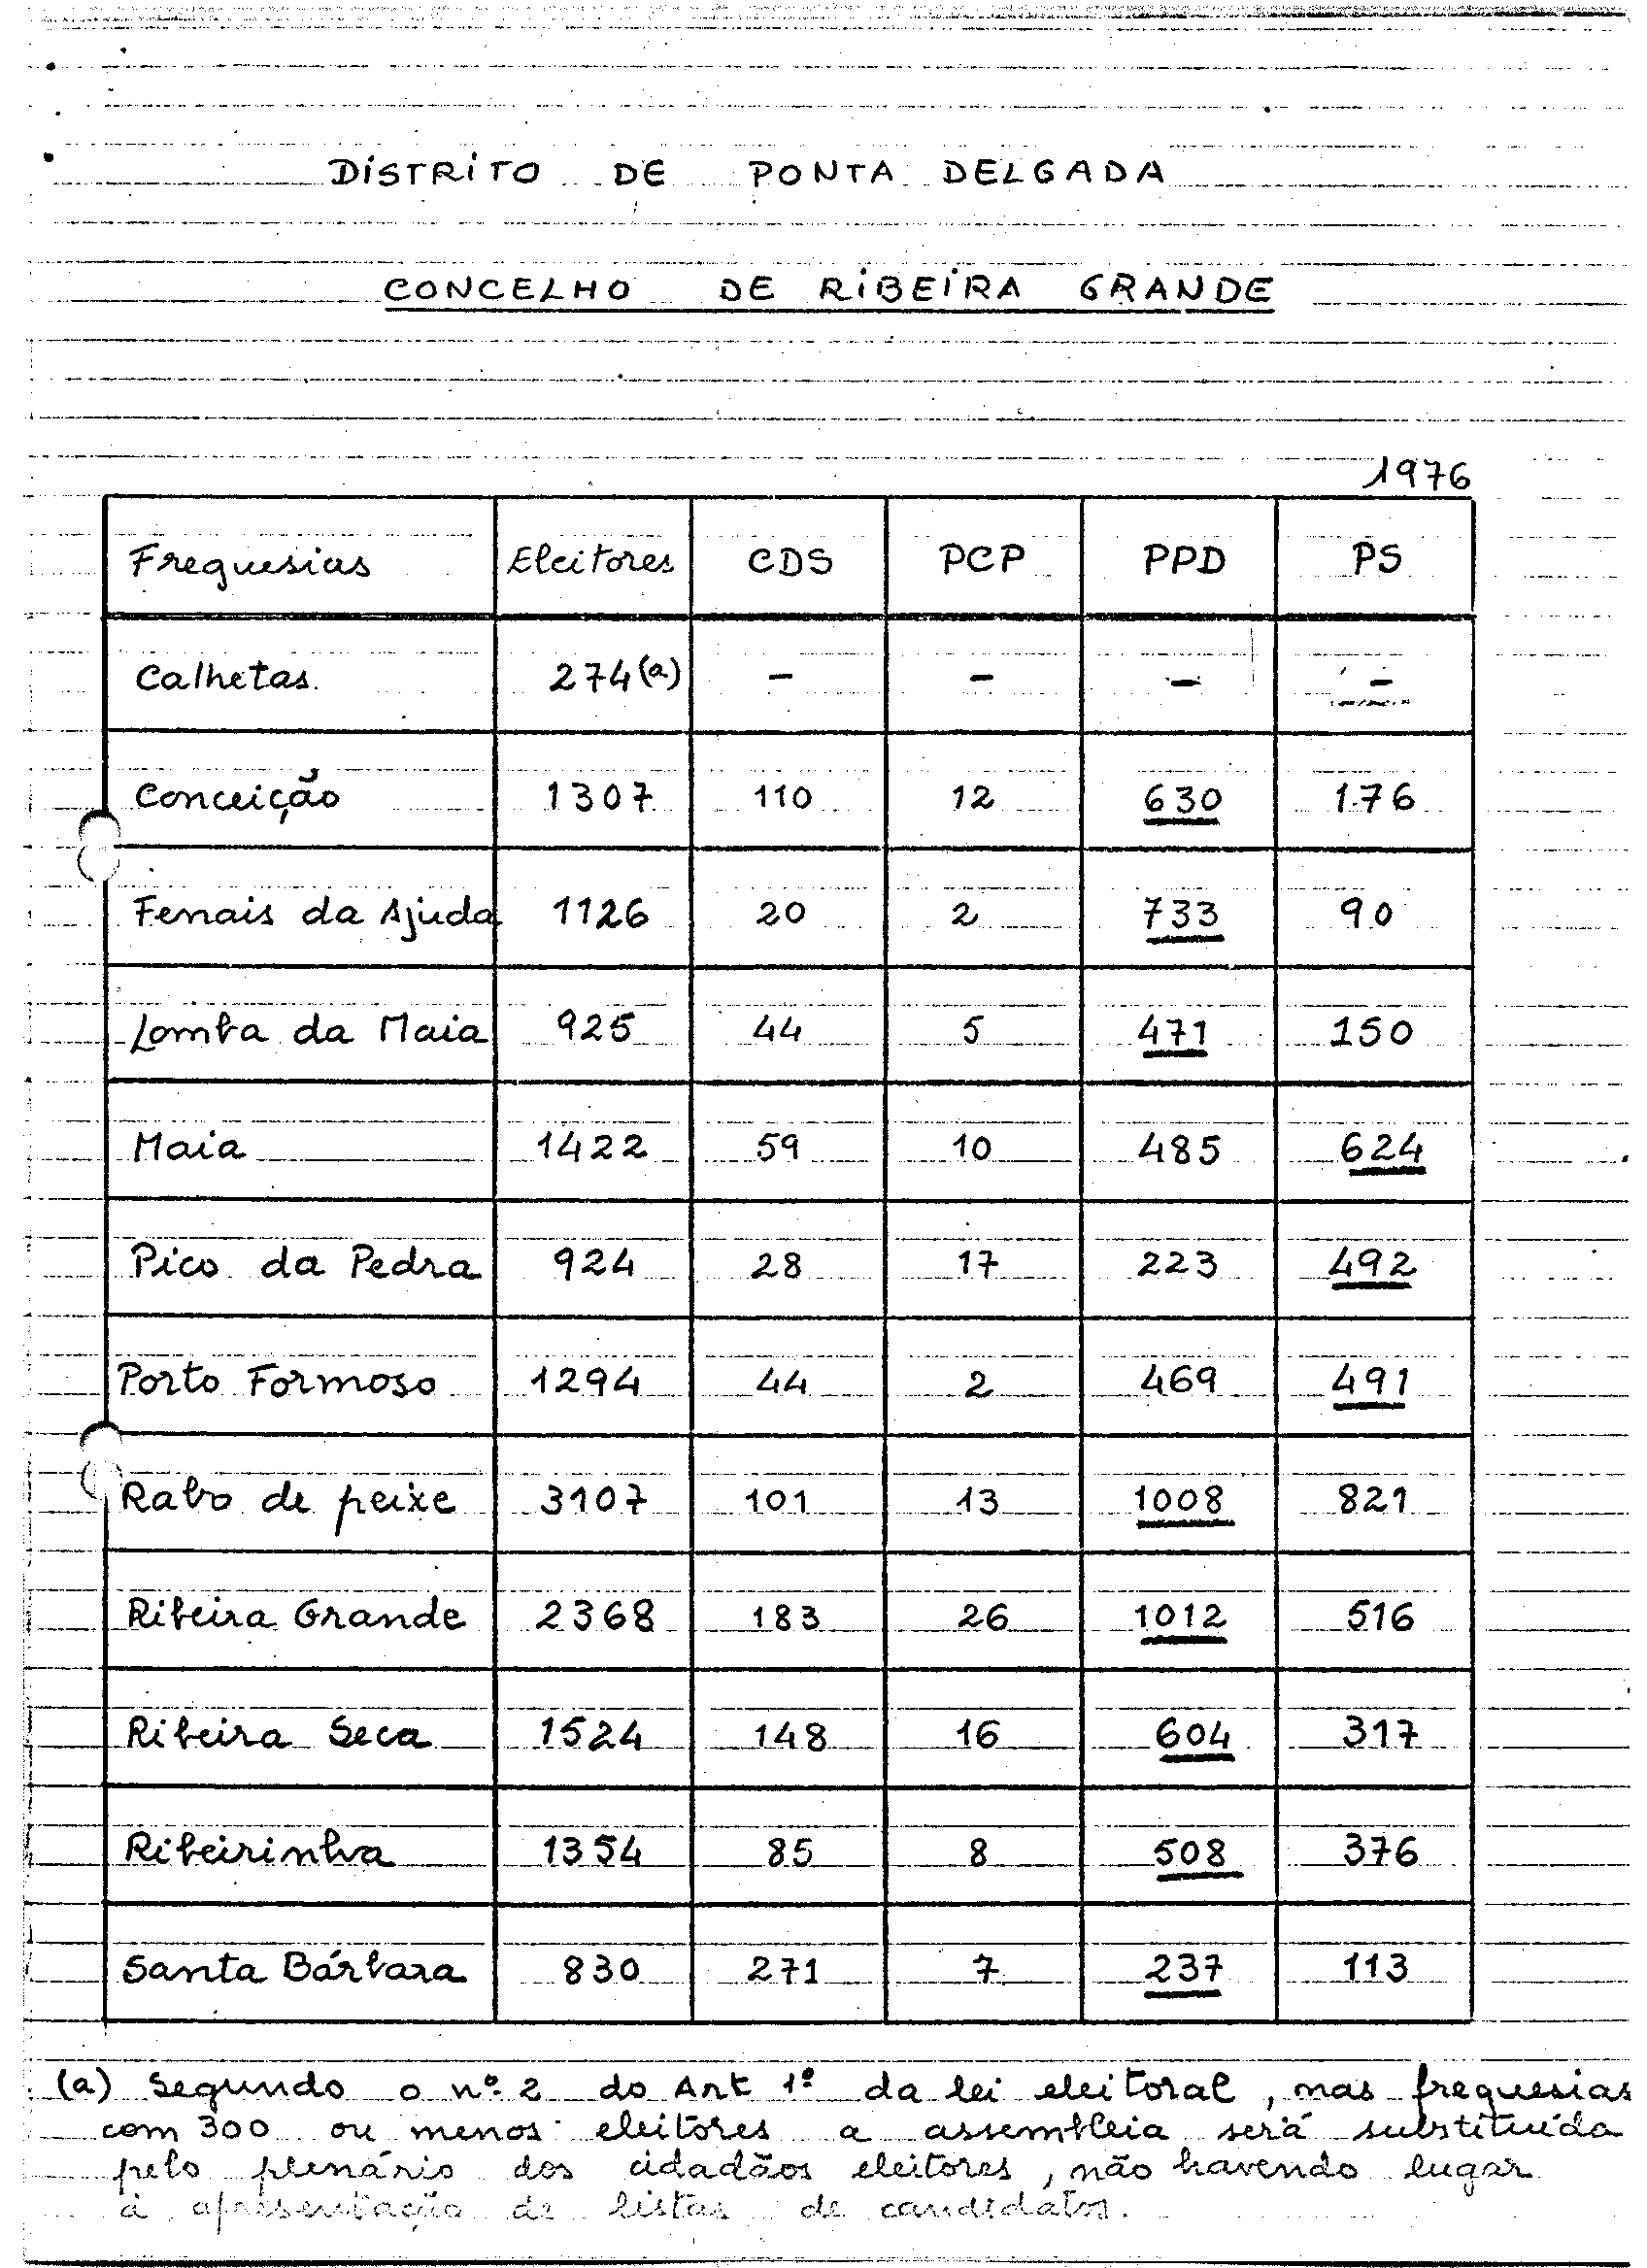 DISTRITO DE PONTA DELGADA
CONCELHO DE RIBEIRA GRANDE
1976
Freguesias Eleitores CDS PCP PPD PS
Calhetas 274 (a) - - - -
Conceição 1307 110 12 630 176
Fenais da Ajuda 1126 20 2 733 90
Lomba da Maia 925 44 5 471 150
Maia 1422 59 10 485 624
Pico da Pedra 924 28 17 223 492
Porto Formoso 1294 44 2 469 491
Rabo de peixe 3107 101 13 1008 821
Ribeira Grande 2368 183 26 1012 516
Ribeira Seca 1524 148 16 604 317
Ribeirinha 1354 85 8 508 376
Santa Bárbara 830 271 7 237 113
(a) Segundo o nº 2 do Art 1º da lei eleitoral, nas freguesias
com 300 ou menos eleitores a assembleia será substituída
pelo plenário dos cidadãos eleitores, não havendo lugar
à apresentação de listas de candidatos.